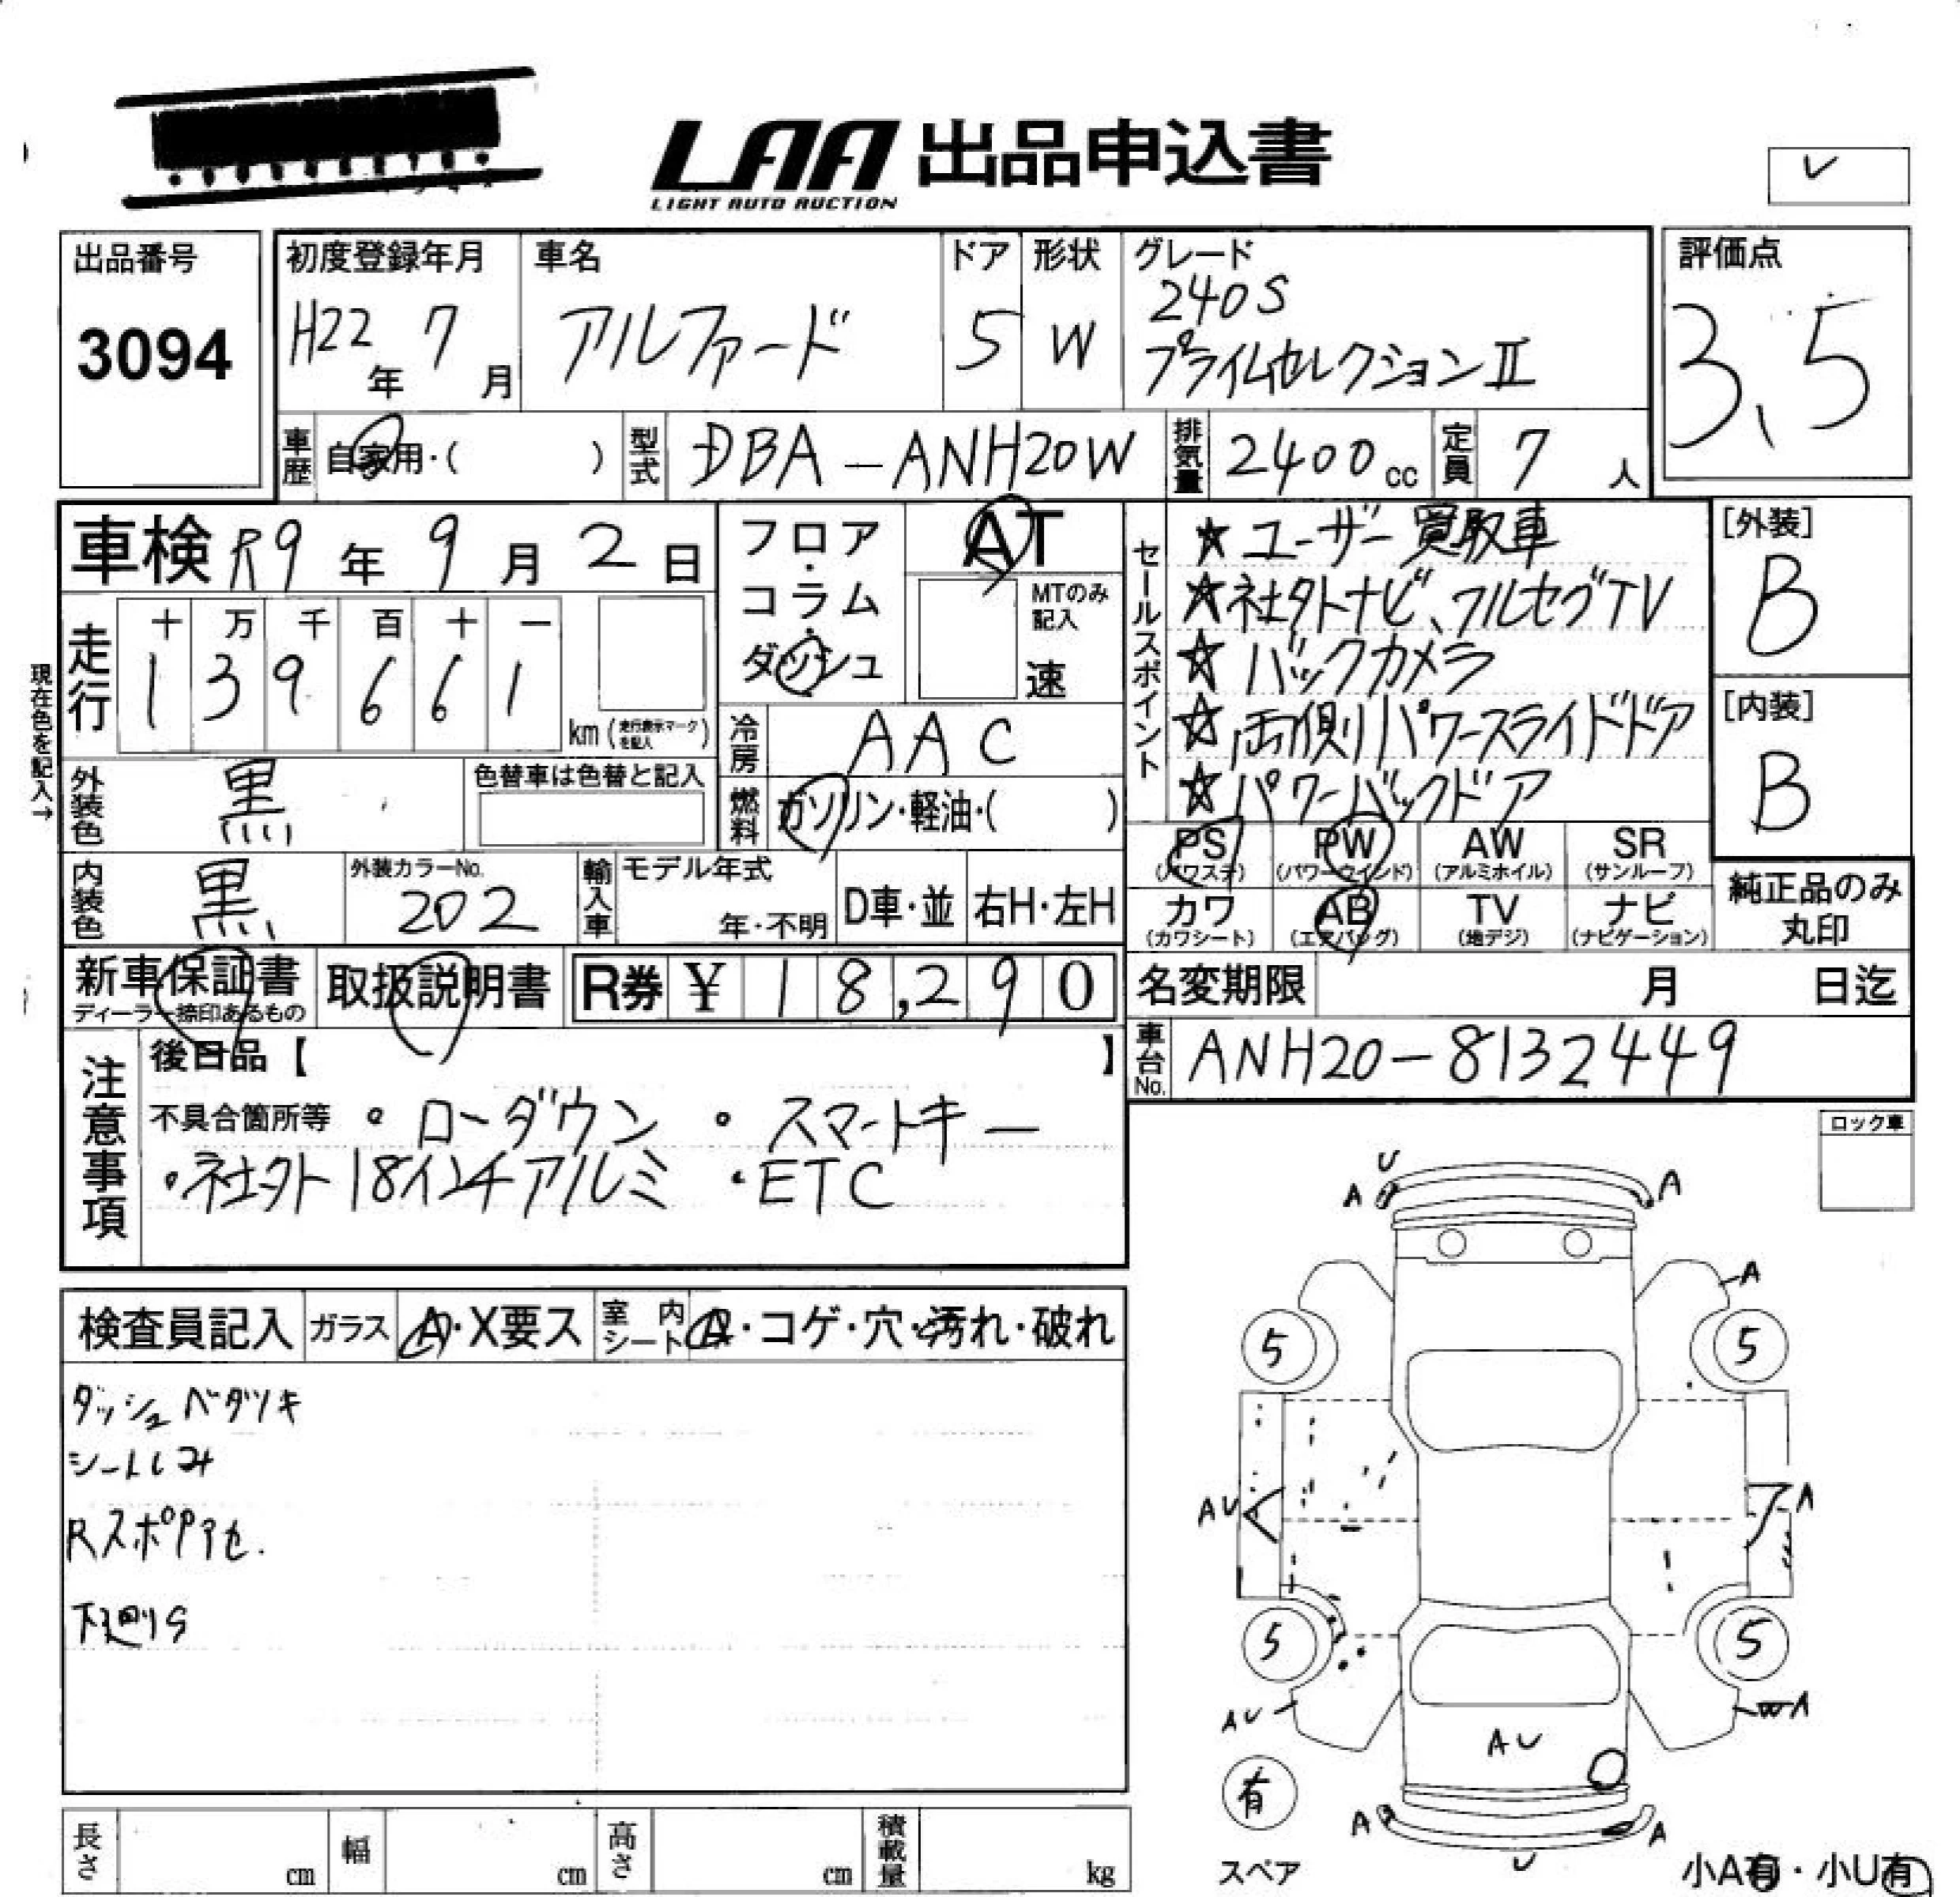 LAA 出品申込書
LIGHT AUTO AUCTION
レ
出品番号
3094
初度登録年月
H22年 7月
車名
アルファード
ドア
5
形状
W
グレード
240S
プライムセレクションⅡ
評価点
3.5
車歴 自家用・( )
型式 DBA-ANH20W
排気量 2400cc
定員 7人
車検 R9年 9月 2日
現在色を記入→
走行
十 万 千 百 十 一
1 3 9 6 6 1
km(走行表示マークを記入)
フロア・コラム・ダッシュ
AT
MTのみ記入
速
冷房 AAC
燃料 ガソリン・軽油・( )
外装色 黒
色替車は色替と記入
内装色 黒
外装カラーNo.
202
輸入車
モデル年式
年・不明
D車・並
右H・左H
セールスポイント
☆ユーザー買取車
☆社外ナビ、フルセグTV
☆バックカメラ
☆両側パワースライドドア
☆パワーバックドア
[外装]
B
[内装]
B
PS (パワステ)
PW (パワーウインド)
AW (アルミホイル)
SR (サンルーフ)
カワ (カワシート)
AB (エアバッグ)
TV (地デジ)
ナビ (ナビゲーション)
純正品のみ丸印
新車保証書
ディーラー捺印あるもの
取扱説明書
R券 ¥ 18,290
名変期限 月 日迄
車台No. ANH20-8132449
注意事項
後日品【 】
不具合箇所等 ・ローダウン ・スマートキー
・社外18インチアルミ ・ETC
ロック車
検査員記入
ガラス A・X要ス
室内シート A・コゲ・穴・汚れ・破れ
ダッシュベタツキ
シートしみ
下廻りS
U
A A
A
5 5
AU A
5 5
AU WA
AU
有
スペア
A A
U
小A有・小U有
長さ cm
幅 cm
高さ cm
積載量 kg